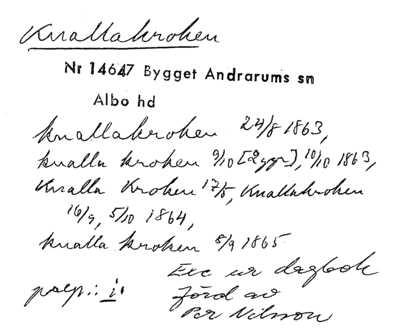 Knallakroken
Nr 14647 Bygget Andrarums sn
Albo hd
knallakroken 24/8 1863,
knalla kroken 9/10 [2ggr], 10/10 1863,
Knalla Kroken 17/5, Knallakroken
16/9, 5/10 1864,
knalla kroken 8/9 1865
Exc ur dagbok
prep.: i
förd av
Per Nilsson